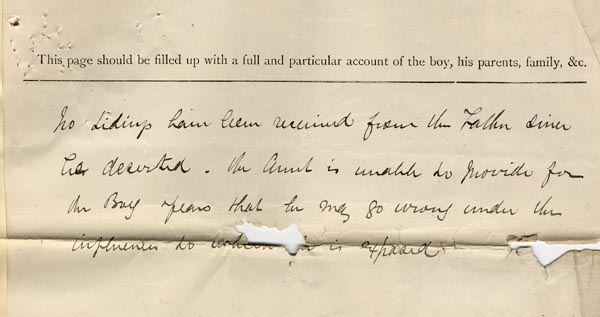 This page should be filled up with a full and particular account of the boy, his parents, family, &c.
No tidings have been received from the Father since
he deserted. The Aunt is unable to provide for
the Boy & fears that he may go wrong under the
influences to which he is exposed